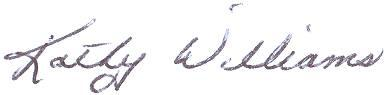 Kathy Williams